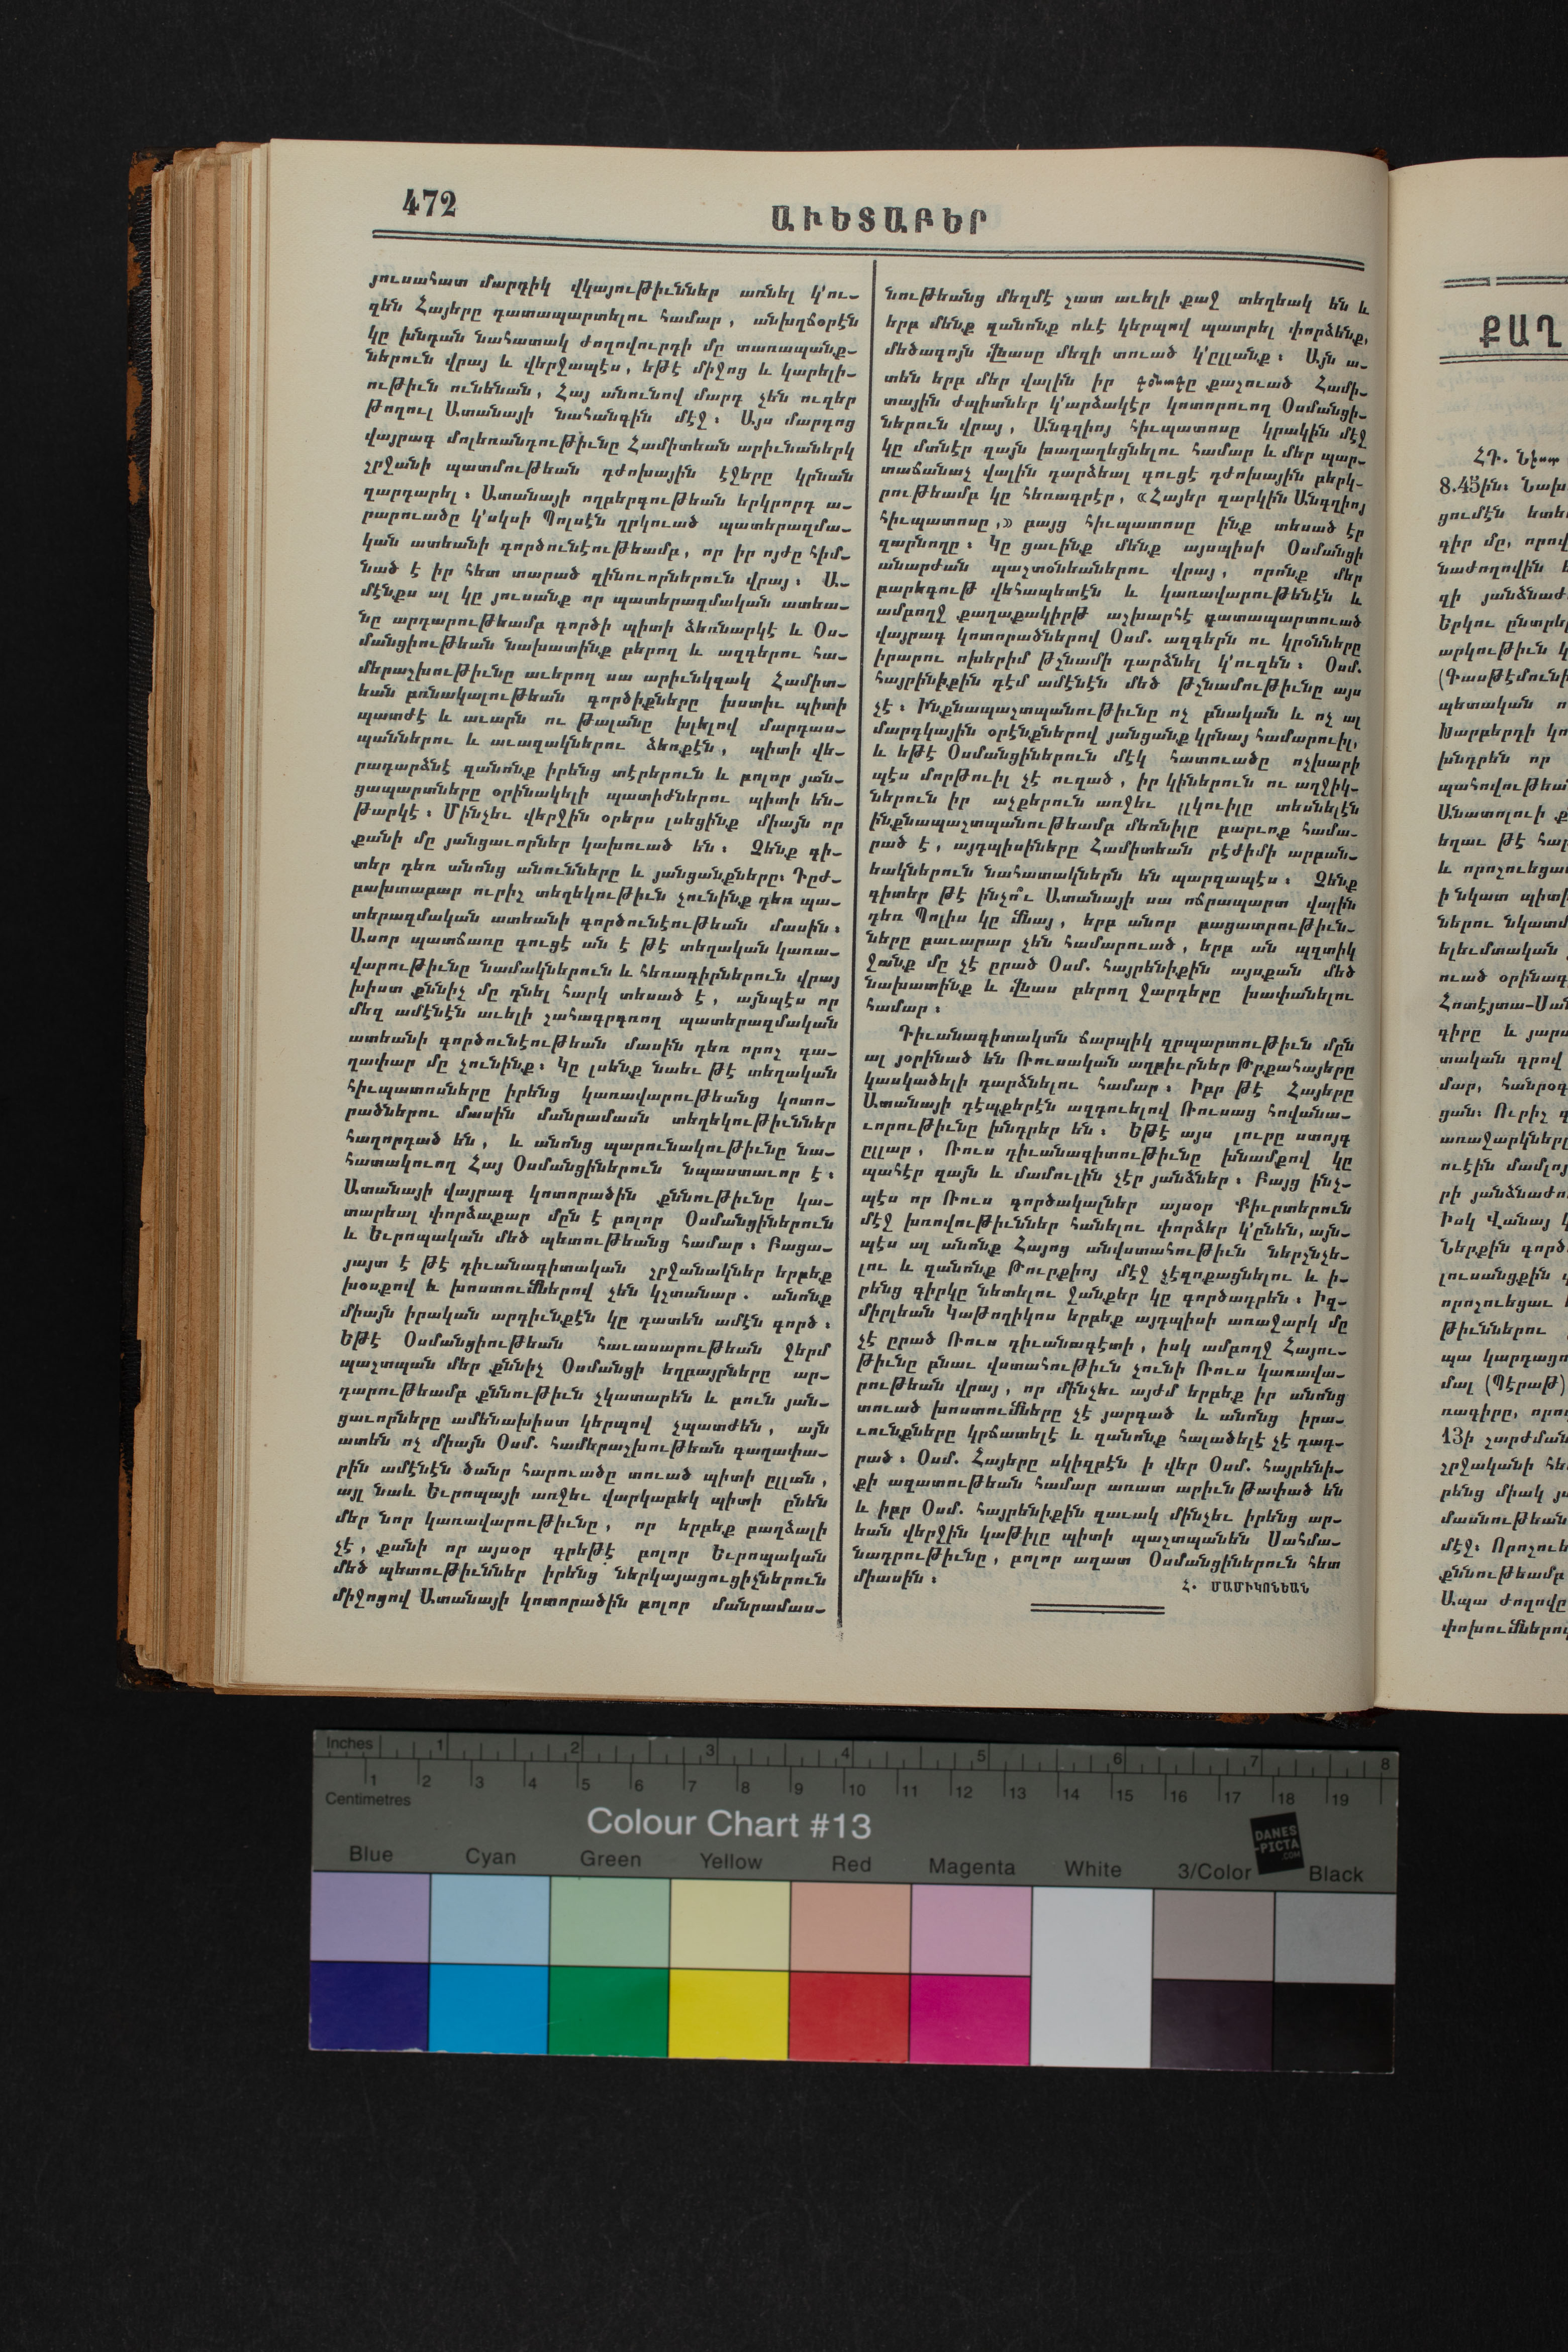 472
ԱՒԵՏԱԲԵՐ
յուսահատ մարդիկ վկայութիւններ առնել կ'ու-
զեն Հայերը դատապարտելու համար, անխղճօրէն
կը խնդան նահատակ ժողովուրդի մը տառապանք-
ներուն վրայ և վերջապէս, եթէ միջոց և կարելի-
ութիւն ունենան, Հայ անունով մարդ չեն ուզեր
թողուլ Ատանայի նահանգին մէջ։ Այս մարդոց
վայրագ մոլեռանդութիւնը Համիտեան արիւնաներկ
շրջանի պատմութեան դժոխային էջերը կրնան
զարդարել։ Ատանայի ողբերգութեան երկրորդ ա-
րարուածը կ'սկսի Պոլսէն ղրկուած պատերազմա-
կան ատեանի գործունէութեամբ, որ իր ոյժը հիմ-
նած է իր հետ տարած զինուորներուն վրայ։ Ա-
մէնքս ալ կը յուսանք որ պատերազմական ատեա-
նը արդարութեամբ գործի պիտի ձեռնարկէ և Օս-
մանցիութեան նախատինք բերող և ազգերու հա-
մերաշխութիւնը աւերող սա արիւնկզակ Համիտ-
եան բռնակալութեան գործիքները խստիւ պիտի
պատժէ և աւարն ու թալանը խլելով մարդաս-
պաններու և աւազակներու ձեռքէն, պիտի վե-
րադարձնէ զանոնք իրենց տէրերուն և բոլոր յան-
ցապարտները օրինակելի պատիժներու պիտի են-
թարկէ։ Մինչեւ վերջին օրերս լսեցինք միայն որ
քանի մը յանցաւորներ կախուած են։ Չենք գի-
տեր դեռ անոնց անունները և յանցանքները։ Դըժ-
բախտաբար ուրիշ տեղեկութիւն չունինք դեռ պա-
տերազմական ատեանի գործունէութեան մասին։
Ասոր պատճառը գուցէ ան է թէ տեղական կառա-
վարութիւնը նամակներուն և հեռագիրներուն վրայ
խիստ քննիչ մը դնել հարկ տեսած է, այնպէս որ
մեզ ամէնէն աւելի շահագրգռող պատերազմական
ատեանի գործունէութեան մասին դեռ որոշ գա-
ղափար մը չունինք։ Կը լսենք նաեւ թէ տեղական
հիւպատոսները իրենց կառավարութեանց կոտո-
րածներու մասին մանրամասն տեղեկութիւններ
հաղորդած են, և անոնց պարունակութիւնը նա-
հատակուող Հայ Օսմանցիներուն նպաստաւոր է։
Ատանայի վայրագ կոտորածին քննութիւնը կա-
տարեալ փորձաքար մըն է բոլոր Օսմանցիներուն
և Եւրոպական մեծ պետութեանց համար։ Բացա-
յայտ է թէ դիւանագիտական շրջանակներ երբեք
խօսքով և խոստումներով չեն կշտանար. անոնք
միայն իրական արդիւնքէն կը դատեն ամէն գործ։
Եթէ Օսմանցիութեան հաւասարութեան ջերմ
պաշտպան մեր քննիչ Օսմանցի եղբայրները ար-
դարութեամբ քննութիւն չկատարեն և բուն յան-
ցաւորները ամենախիստ կերպով չպատժեն, այն
ատեն ոչ միայն Օսմ. համերաշխութեան գաղափա-
րին ամէնէն ծանր հարուածը տուած պիտի ըլլան,
այլ նաև Եւրոպայի առջեւ վարկաբեկ պիտի ընեն
մեր նոր կառավարութիւնը, որ երբեք բաղձալի
չէ, քանի որ այսօր գրեթէ բոլոր Եւրոպական
մեծ պետութիւններ իրենց ներկայացուցիչներուն
միջոցով Ատանայի կոտորածին բոլոր մանրամաս-
նութեանց մեզմէ շատ աւելի քաջ տեղեակ են և
երբ մենք զանոնք ոևէ կերպով պատրել փորձենք,
մեծագոյն վնասը մեզի տուած կ'ըլլանք։ Այն ա-
տեն երբ մեր վալին իր քաշուած Համի-
տային ժպիտներ կ'արձակէր կոտորուող Օսմանցի-
ներուն վրայ, Անգղիոյ հիւպատոսը կրակին մէջ
կը մտնէր զայն խաղաղեցնելու համար և մեր պար-
տաճանաչ վալին դարձեալ գուցէ դժոխային բերկ-
րութեամբ կը հեռագրէր, «Հայեր զարկին Անգղիոյ
հիւպատոսը,» բայց հիւպատոսը ինք տեսած էր
զարնողը։ Կը ցաւինք մենք այսպիսի Օսմանցի
անարժան պաշտօնեաներու վրայ, որոնք մեր
բարեգութ վեհապետէն և կառավարութենէն և
ամբողջ քաղաքակիրթ աշխարհէ դատապարտուած
վայրագ կոտորածներով Օսմ. ազգերն ու կրօնները
իրարու ոխերիմ թշնամի դարձնել կ'ուզեն։ Օսմ.
հայրինիքին դէմ ամէնէն մեծ թշնամութիւնը այս
չէ։ Ինքնապաշտպանութիւնը ոչ բնական և ոչ ալ
մարդկային օրէնքներով յանցանք կրնայ համարուիլ,
և եթէ Օսմանցիներուն մէկ հատուածը ոչխարի
պէս մորթուիլ չէ ուզած, իր կիներուն ու աղջիկ-
ներուն իր աչքերուն առջեւ լլկուիլը տեսնելէն
ինքնապաշտպանութեամբ մեռնիլը բարւոք համա-
րած է, այդպիսիները Համիտեան րէժիմի արբան-
եակներուն նահատակներն են պարզապէս։ Չենք
գիտեր թէ ինչո՞ւ Ատանայի սա ոճրապարտ վալին
դեռ Պոլիս կը մնայ, երբ անոր բացատրութիւն-
ները բաւարար չեն համարուած, երբ ան պզտիկ
ջանք մը չէ ըրած Օսմ. հայրենիքին այսքան մեծ
նախատինք և վնաս բերող ջարդերը խափանելու
համար։
Դիւանագիտական ճարպիկ զրպարտութիւն մըն
ալ յօրինած են Ռուսական աղբիւրներ Թրքահայերը
կասկածելի դարձնելու համար։ Իբր թէ Հայերը
Ատանայի դէպքերէն ազդուելով Ռուսաց հովանա-
ւորութիւնը խնդրեր են։ Եթէ այս լուրը ստոյգ
ըլլար, Ռուս դիւանագիտութիւնը խնամքով կը
պահէր զայն և մամուլին չէր յանձներ։ Բայց ինչ-
պէս որ Ռուս գործակալներ այսօր Քիւրտերուն
մէջ խռովութիւններ հանելու փորձեր կ'ընեն, այն-
պէս ալ անոնք Հայոց անվստահութիւն ներշնչե-
լու և զանոնք Թուրքիոյ մէջ չէզոքացնելու և ի-
րենց գիրկը նետելու ջանքեր կը գործադրեն։ Իզ-
միրլեան Կաթողիկոս երբեք այդպիսի առաջարկ մը
չէ ըրած Ռուս դիւանագէտի, իսկ ամբողջ Հայու-
թիւնը բնաւ վստահութիւն չունի Ռուս կառավա-
րութեան վրայ, որ մինչեւ այժմ երբեք իր անոնց
տուած խոստումները չէ յարգած և անոնց իրա-
ւունքները կրճատելէ և զանոնք հալածելէ չէ դադ-
րած։ Օսմ. Հայերը սկիզբէն ի վեր Օսմ. հայրենի-
քի ազատութեան համար առատ արիւն թափած են
և իբր Օսմ. հայրենիքին զաւակ մինչեւ իրենց ար-
եան վերջին կաթիլը պիտի պաշտպանեն Սահմա-
նադրութիւնը, բոլոր ազատ Օսմանցիներուն հետ
միասին։
Հ. ՄԱՄԻԿՈՆԵԱՆ
ՔԱՂ
ՀԴ. Նիստ
8.45ին։ Նախ
ցումէն ետե
դիր մը, որով
նաժողովին
զի յանձնաժ
Երկու ընտրե
արկութիւն կ
(Գասթէմունի
պետական ո
Խարբերդի կո
խնդրեն որ
պահովութեա
Անատոլուի ք
եղաւ թէ հար
և որոշուեցաւ
ի նկատ պիտի
ներու նկատմ
ելեւմտական
ուած օրինագ
Հոտէյտա-Սան
գիրը և յարա
տական դրով
մար, հանրօգ
ցան։ Ուրիշ
առաջարկները
ուէին մամլոյ
րի յանձնաժո
Իսկ Վանայ կ
Ներքին գործ
լուսանցքին
որոշուեցաւ
թիւններու
պա կարդացո
մալ (Պէրաթ)
ռագիրը, որո
13ի շարժման
շրջականի հե
րենց միակ յա
մասնութեան
մէջ։ Որոշուե
քննութեամբ
Ապա ժողովը
փոխումներո
Inches 1 2 3 4 5 6 7 8
1 2 3 4 5 6 7 8 9 10 11 12 13 14 15 16 17 18 19
Centimetres
Colour Chart #13
DANES
-PICTA
.COM
Blue Cyan Green Yellow Red Magenta White 3/Color Black